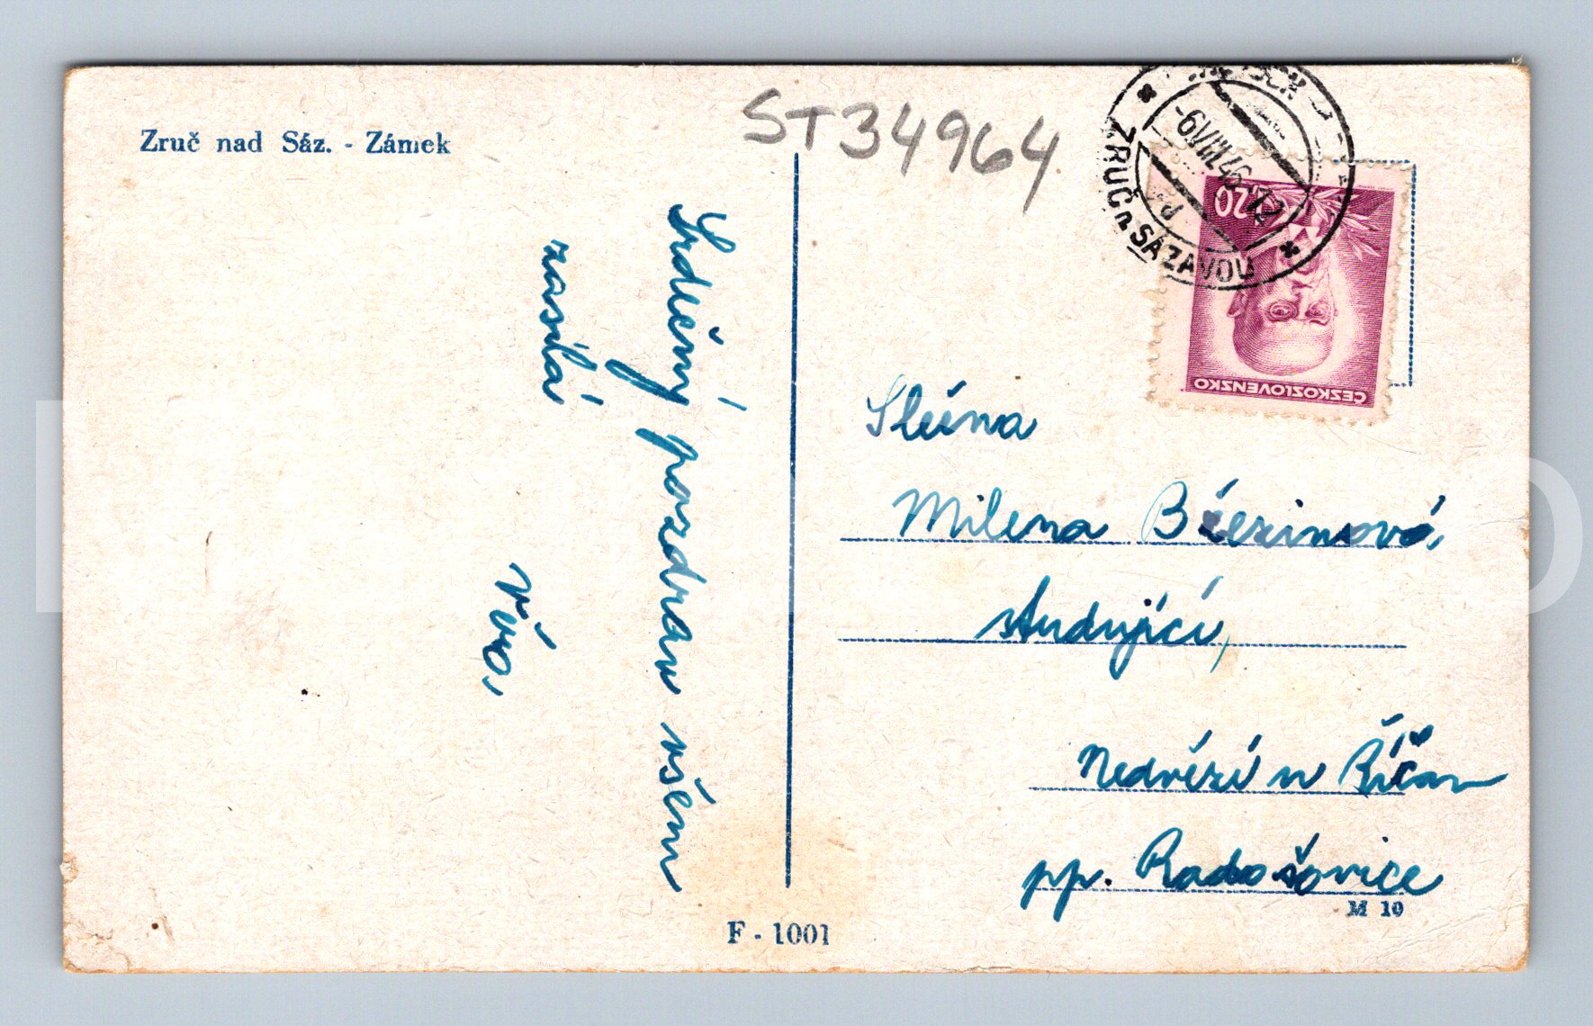 Zruč nad Sáz. - Zámek
ST34964
Srdečný pozdrav všem
zasílá
Víva,
-6.VIII.46-12
ZRUČ n. SÁZAVOU
1·20
ČESKOSLOVENSKO
Slečna
Milena Březinová,
studující,
Nedvězí u Říčan
pp. Radošovice
M 10
F - 1001